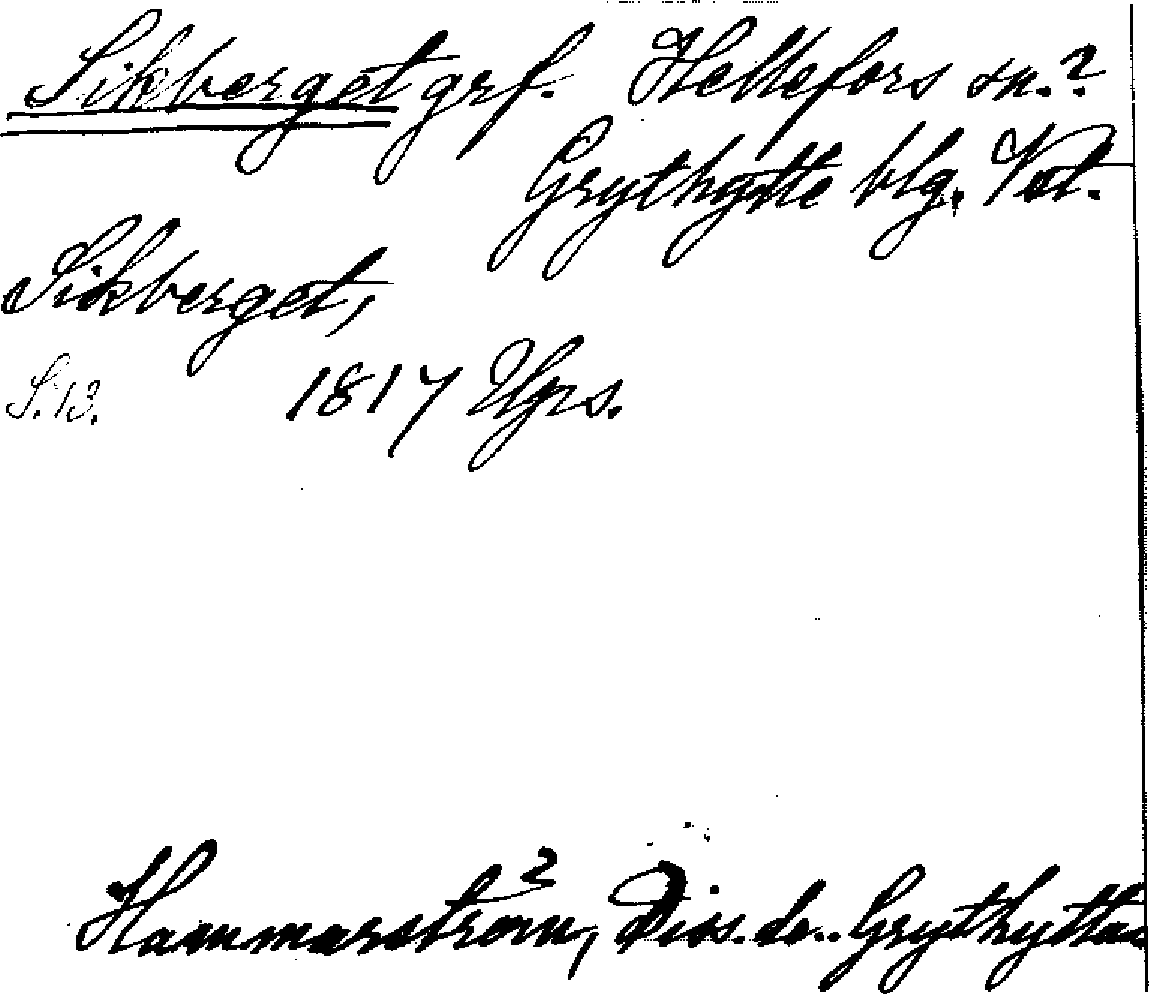 Sikberget grf. Hellefors sn.?
Grythytte blg. Vstl.
Sikberget,
S. 13. 1817 Ups.
Hammarström, Diss. de.. Grythyttan